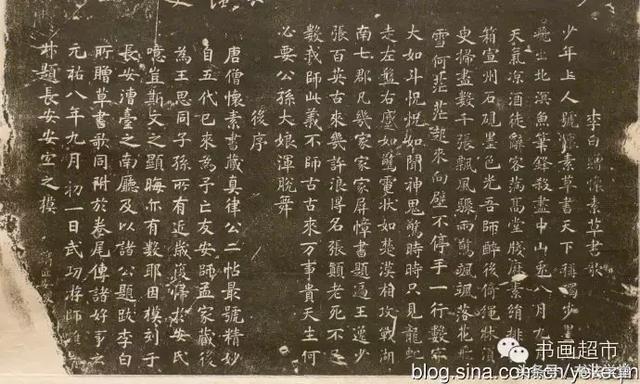 李白贈懷素草書歌
少年上人號懷素草書天下稱獨步墨
飛出北溟魚筆鋒殺盡中山兔八月九
天氣涼酒徒辭客滿高堂牋麻素絹排
箱宣州石硯墨色光吾師醉後倚繩牀須
臾掃盡數千張飄風驟雨驚颯颯落花飛
雪何茫茫起來向壁不停手一行數字
大如斗怳怳如聞神鬼驚時時只見龍蛇
走左盤右蹙如驚電狀如楚漢相攻戰湖
南七郡凡幾家家家屏幛書題遍王逸少
張百英古來幾許浪得名張顛老死不足
數我師此義不師古古來万事貴天生何
必要公孫大娘渾脫舞
後序
唐僧懷素書藏真律公二帖最號精妙
自五代已來為予亡友安師孟家藏後
為王思同子孫所有近歲復歸於安氏
噫豈斯文之顯晦亦有數耶因模刻于
長安漕臺之南廳及以諸公題跋李白
所贈草書歌同附於卷尾傳諸好事之
元祐八年九月初一日武功游師雄
叔題長安安宜之模
书画超市
blog.sina.com.cn/yekecun